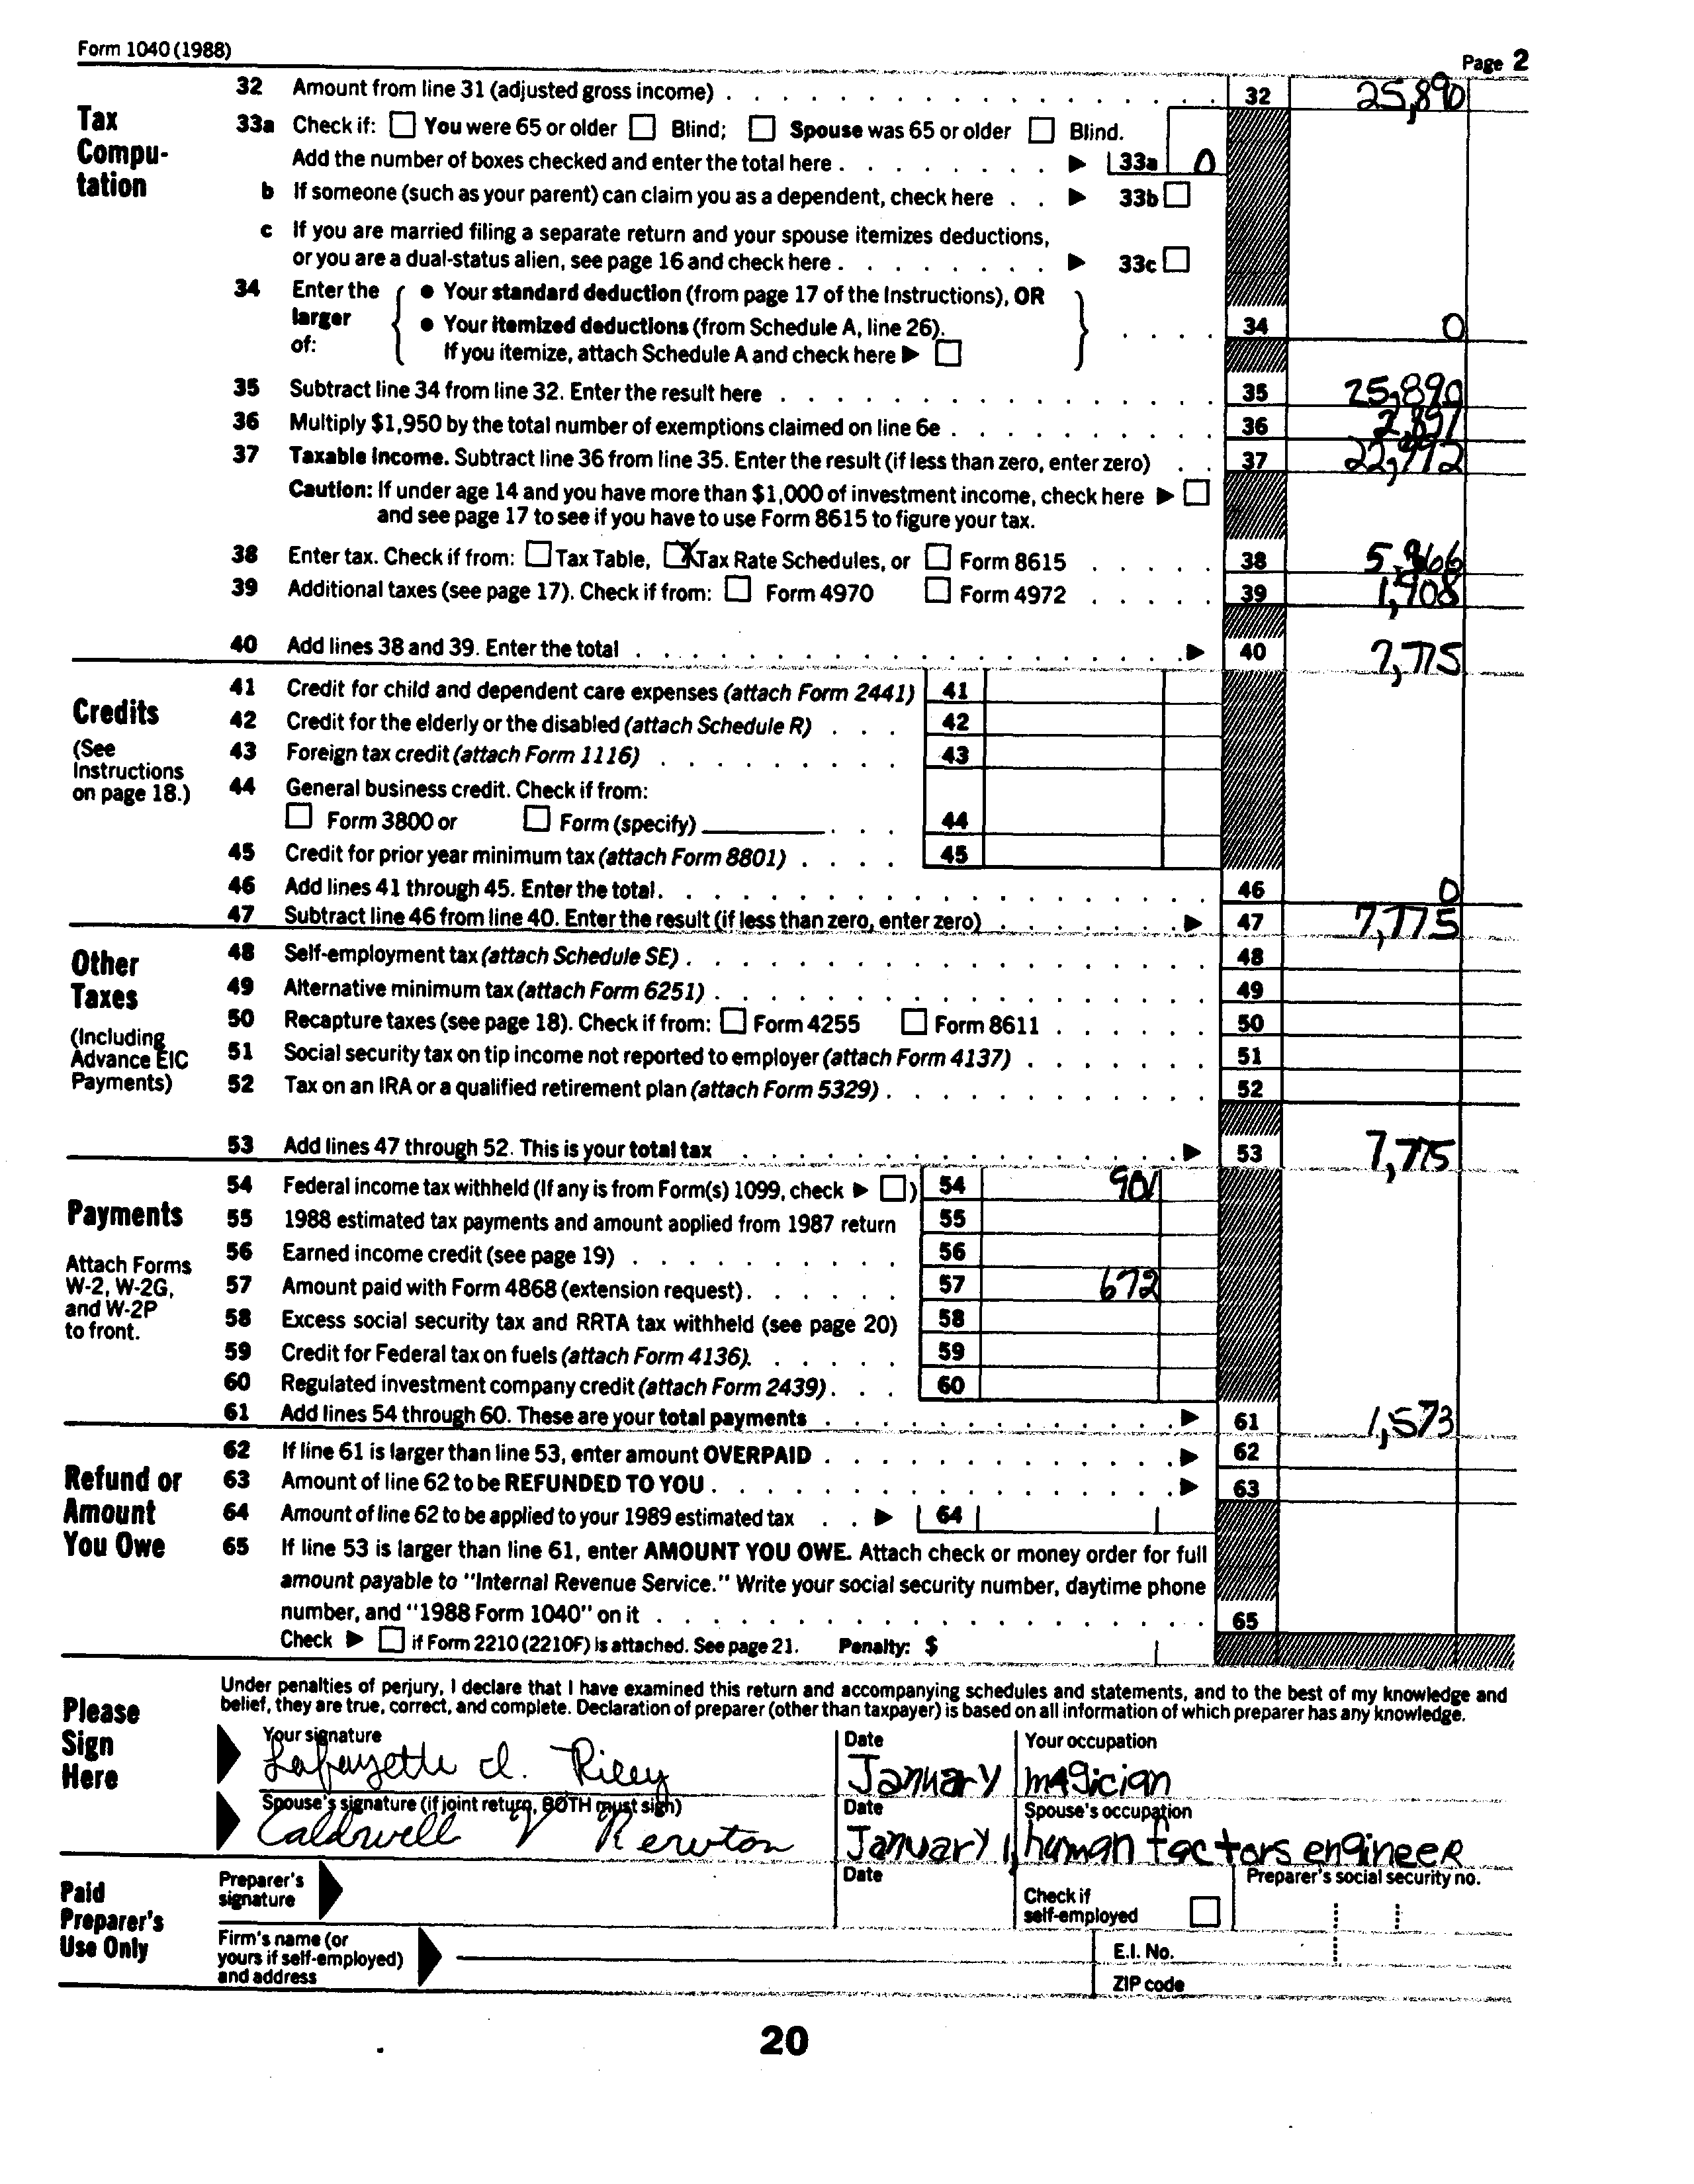 Form 1040 (1988) Page 2
Tax Compu-tation
32 Amount from line 31 (adjusted gross income) 32 25,890
33a Check if: You were 65 or older Blind; Spouse was 65 or older Blind.
Add the number of boxes checked and enter the total here ▶ 33a 0
b If someone (such as your parent) can claim you as a dependent, check here ▶ 33b
c If you are married filing a separate return and your spouse itemizes deductions,
or you are a dual-status alien, see page 16 and check here ▶ 33c
34 Enter the larger of: { ● Your standard deduction (from page 17 of the Instructions), OR
● Your itemized deductions (from Schedule A, line 26). } 34 0
If you itemize, attach Schedule A and check here ▶
35 Subtract line 34 from line 32. Enter the result here 35 25,890
36 Multiply $1,950 by the total number of exemptions claimed on line 6e 36 2,897
37 Taxable income. Subtract line 36 from line 35. Enter the result (if less than zero, enter zero) 37 22,992
Caution: If under age 14 and you have more than $1,000 of investment income, check here ▶
and see page 17 to see if you have to use Form 8615 to figure your tax.
38 Enter tax. Check if from: Tax Table, X Tax Rate Schedules, or Form 8615 38 5,866
39 Additional taxes (see page 17). Check if from: Form 4970 Form 4972 39 1,908
40 Add lines 38 and 39. Enter the total ▶ 40 7,775
Credits
(See Instructions on page 18.)
41 Credit for child and dependent care expenses (attach Form 2441) 41
42 Credit for the elderly or the disabled (attach Schedule R) 42
43 Foreign tax credit (attach Form 1116) 43
44 General business credit. Check if from:
Form 3800 or Form (specify) 44
45 Credit for prior year minimum tax (attach Form 8801) 45
46 Add lines 41 through 45. Enter the total. 46 0
47 Subtract line 46 from line 40. Enter the result (if less than zero, enter zero) ▶ 47 7,775
Other Taxes
(Including Advance EIC Payments)
48 Self-employment tax (attach Schedule SE) 48
49 Alternative minimum tax (attach Form 6251) 49
50 Recapture taxes (see page 18). Check if from: Form 4255 Form 8611 50
51 Social security tax on tip income not reported to employer (attach Form 4137) 51
52 Tax on an IRA or a qualified retirement plan (attach Form 5329) 52
53 Add lines 47 through 52. This is your total tax ▶ 53 7,775
Payments
Attach Forms W-2, W-2G, and W-2P to front.
54 Federal income tax withheld (If any is from Form(s) 1099, check ▶ ) 54 901
55 1988 estimated tax payments and amount applied from 1987 return 55
56 Earned income credit (see page 19) 56
57 Amount paid with Form 4868 (extension request) 57 672
58 Excess social security tax and RRTA tax withheld (see page 20) 58
59 Credit for Federal tax on fuels (attach Form 4136). 59
60 Regulated investment company credit (attach Form 2439) 60
61 Add lines 54 through 60. These are your total payments ▶ 61 1,573
Refund or Amount You Owe
62 If line 61 is larger than line 53, enter amount OVERPAID ▶ 62
63 Amount of line 62 to be REFUNDED TO YOU ▶ 63
64 Amount of line 62 to be applied to your 1989 estimated tax ▶ 64
65 If line 53 is larger than line 61, enter AMOUNT YOU OWE. Attach check or money order for full
amount payable to "Internal Revenue Service." Write your social security number, daytime phone
number, and "1988 Form 1040" on it 65
Check ▶ if Form 2210 (2210F) is attached. See page 21. Penalty: $
Please Sign Here
Under penalties of perjury, I declare that I have examined this return and accompanying schedules and statements, and to the best of my knowledge and
belief, they are true, correct, and complete. Declaration of preparer (other than taxpayer) is based on all information of which preparer has any knowledge.
Your signature Date Your occupation
Lafayette d. Riley January magician
Spouse's signature (if joint return, BOTH must sign) Date Spouse's occupation
Caldwell J Newton January 1, human factors engineer
Paid Preparer's Use Only
Preparer's signature Date Check if self-employed Preparer's social security no.
Firm's name (or yours if self-employed) and address E.I. No.
ZIP code
20